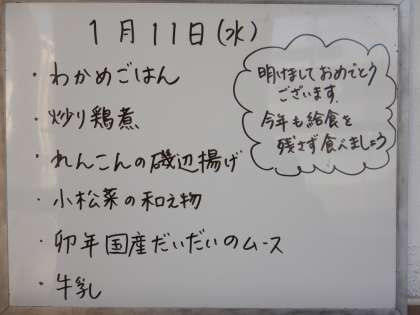 1月11日(水)
・わかめごはん
・炒り鶏煮
・れんこんの磯辺揚げ
・小松菜の和え物
・卯年国産だいだいのムース
・牛乳
明けましておめでとう
ございます。
今年も給食を
残さず食べましょう